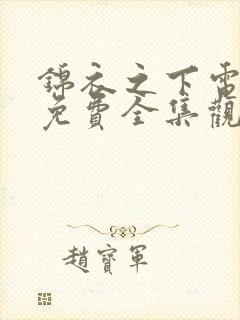 錦衣之下電
免費全集觀
趙寶軍